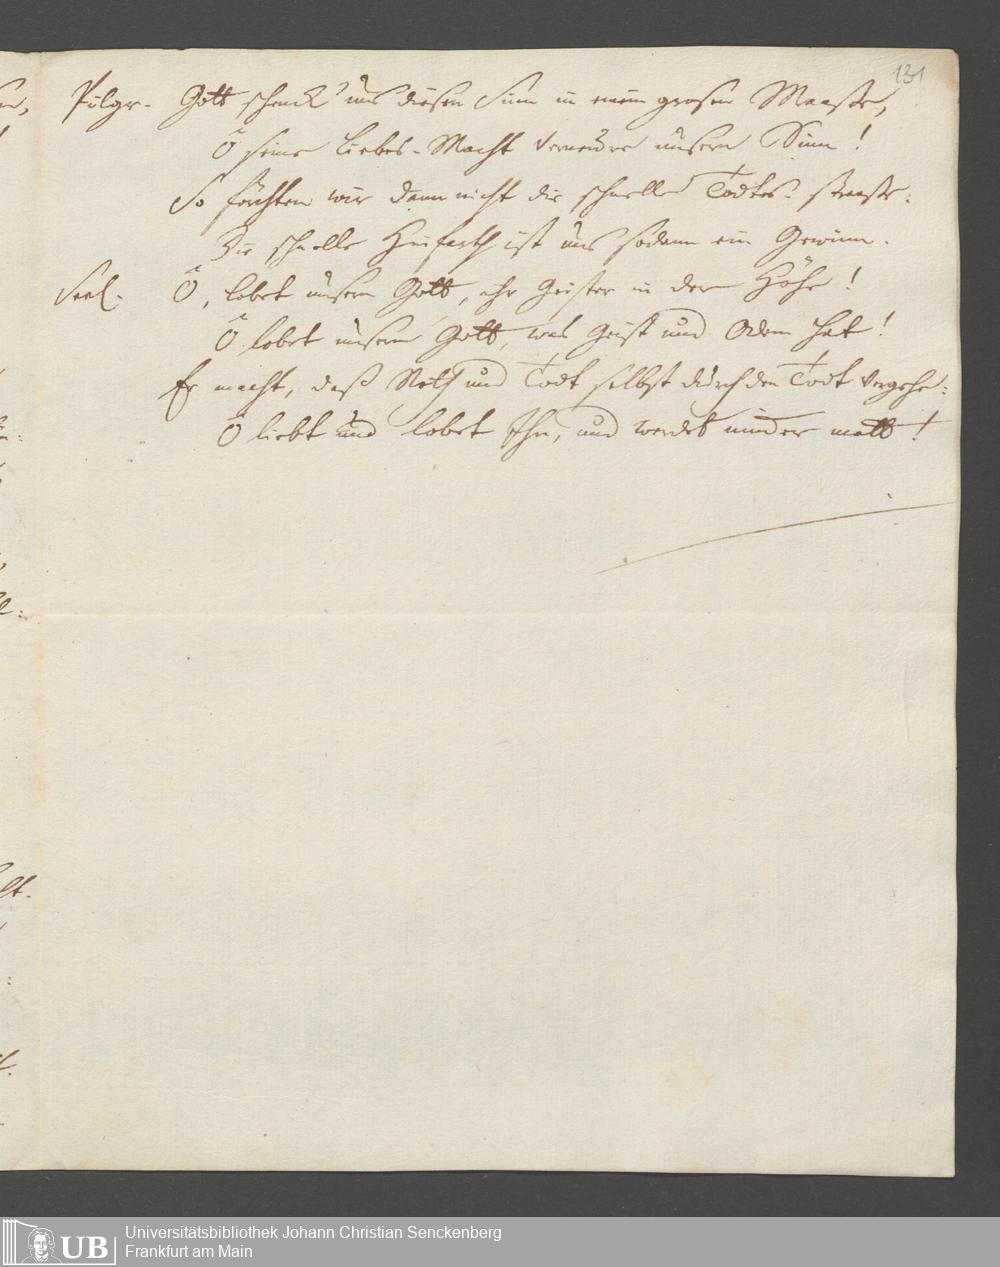 131
Pilgr. Gott schenck' uns diesen Sinn in einem grosen Maasse,
O seine Liebes-Macht verneure unsern Sinn!
So förchten wir dann nicht die schnelle Todtes-strasse:
Die schnelle Hinfarth ist uns sodann ein Gewinn.
Seel. O, lobet unsern Gott, ihr Geister in der Höhe!
O lobet unsern Gott, was Geist und Odem hat!
Er macht, daß Noth und Todt selbst durch den Todt vergehe:
O liebt und lobet Ihn, und werdet nimmer matt!
Universitätsbibliothek Johann Christian Senckenberg
Frankfurt am Main
UB